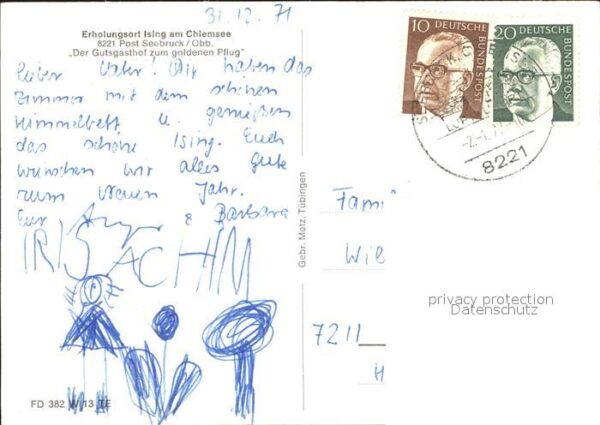 31.12.71
Erholungsort Ising am Chiemsee
8221 Post Seebruck/Obb.
"Der Gutsgasthof zum goldenen Pflug"
Lieber Vater! Wir haben das
Zimmer mit dem schönen
Himmelbett u. genießen
das schöne Ising. Euch
wünschen wir alles Gute
zum Neuen Jahr.
Eur & Barbara
IRIS ACHIM
FD 382 W 13 TE
Gebr. Metz, Tübingen
10 DEUTSCHE BUNDESPOST
20 DEUTSCHE BUNDESPOST
8221
Fami
Wie
7211
H
privacy protection
Datenschutz